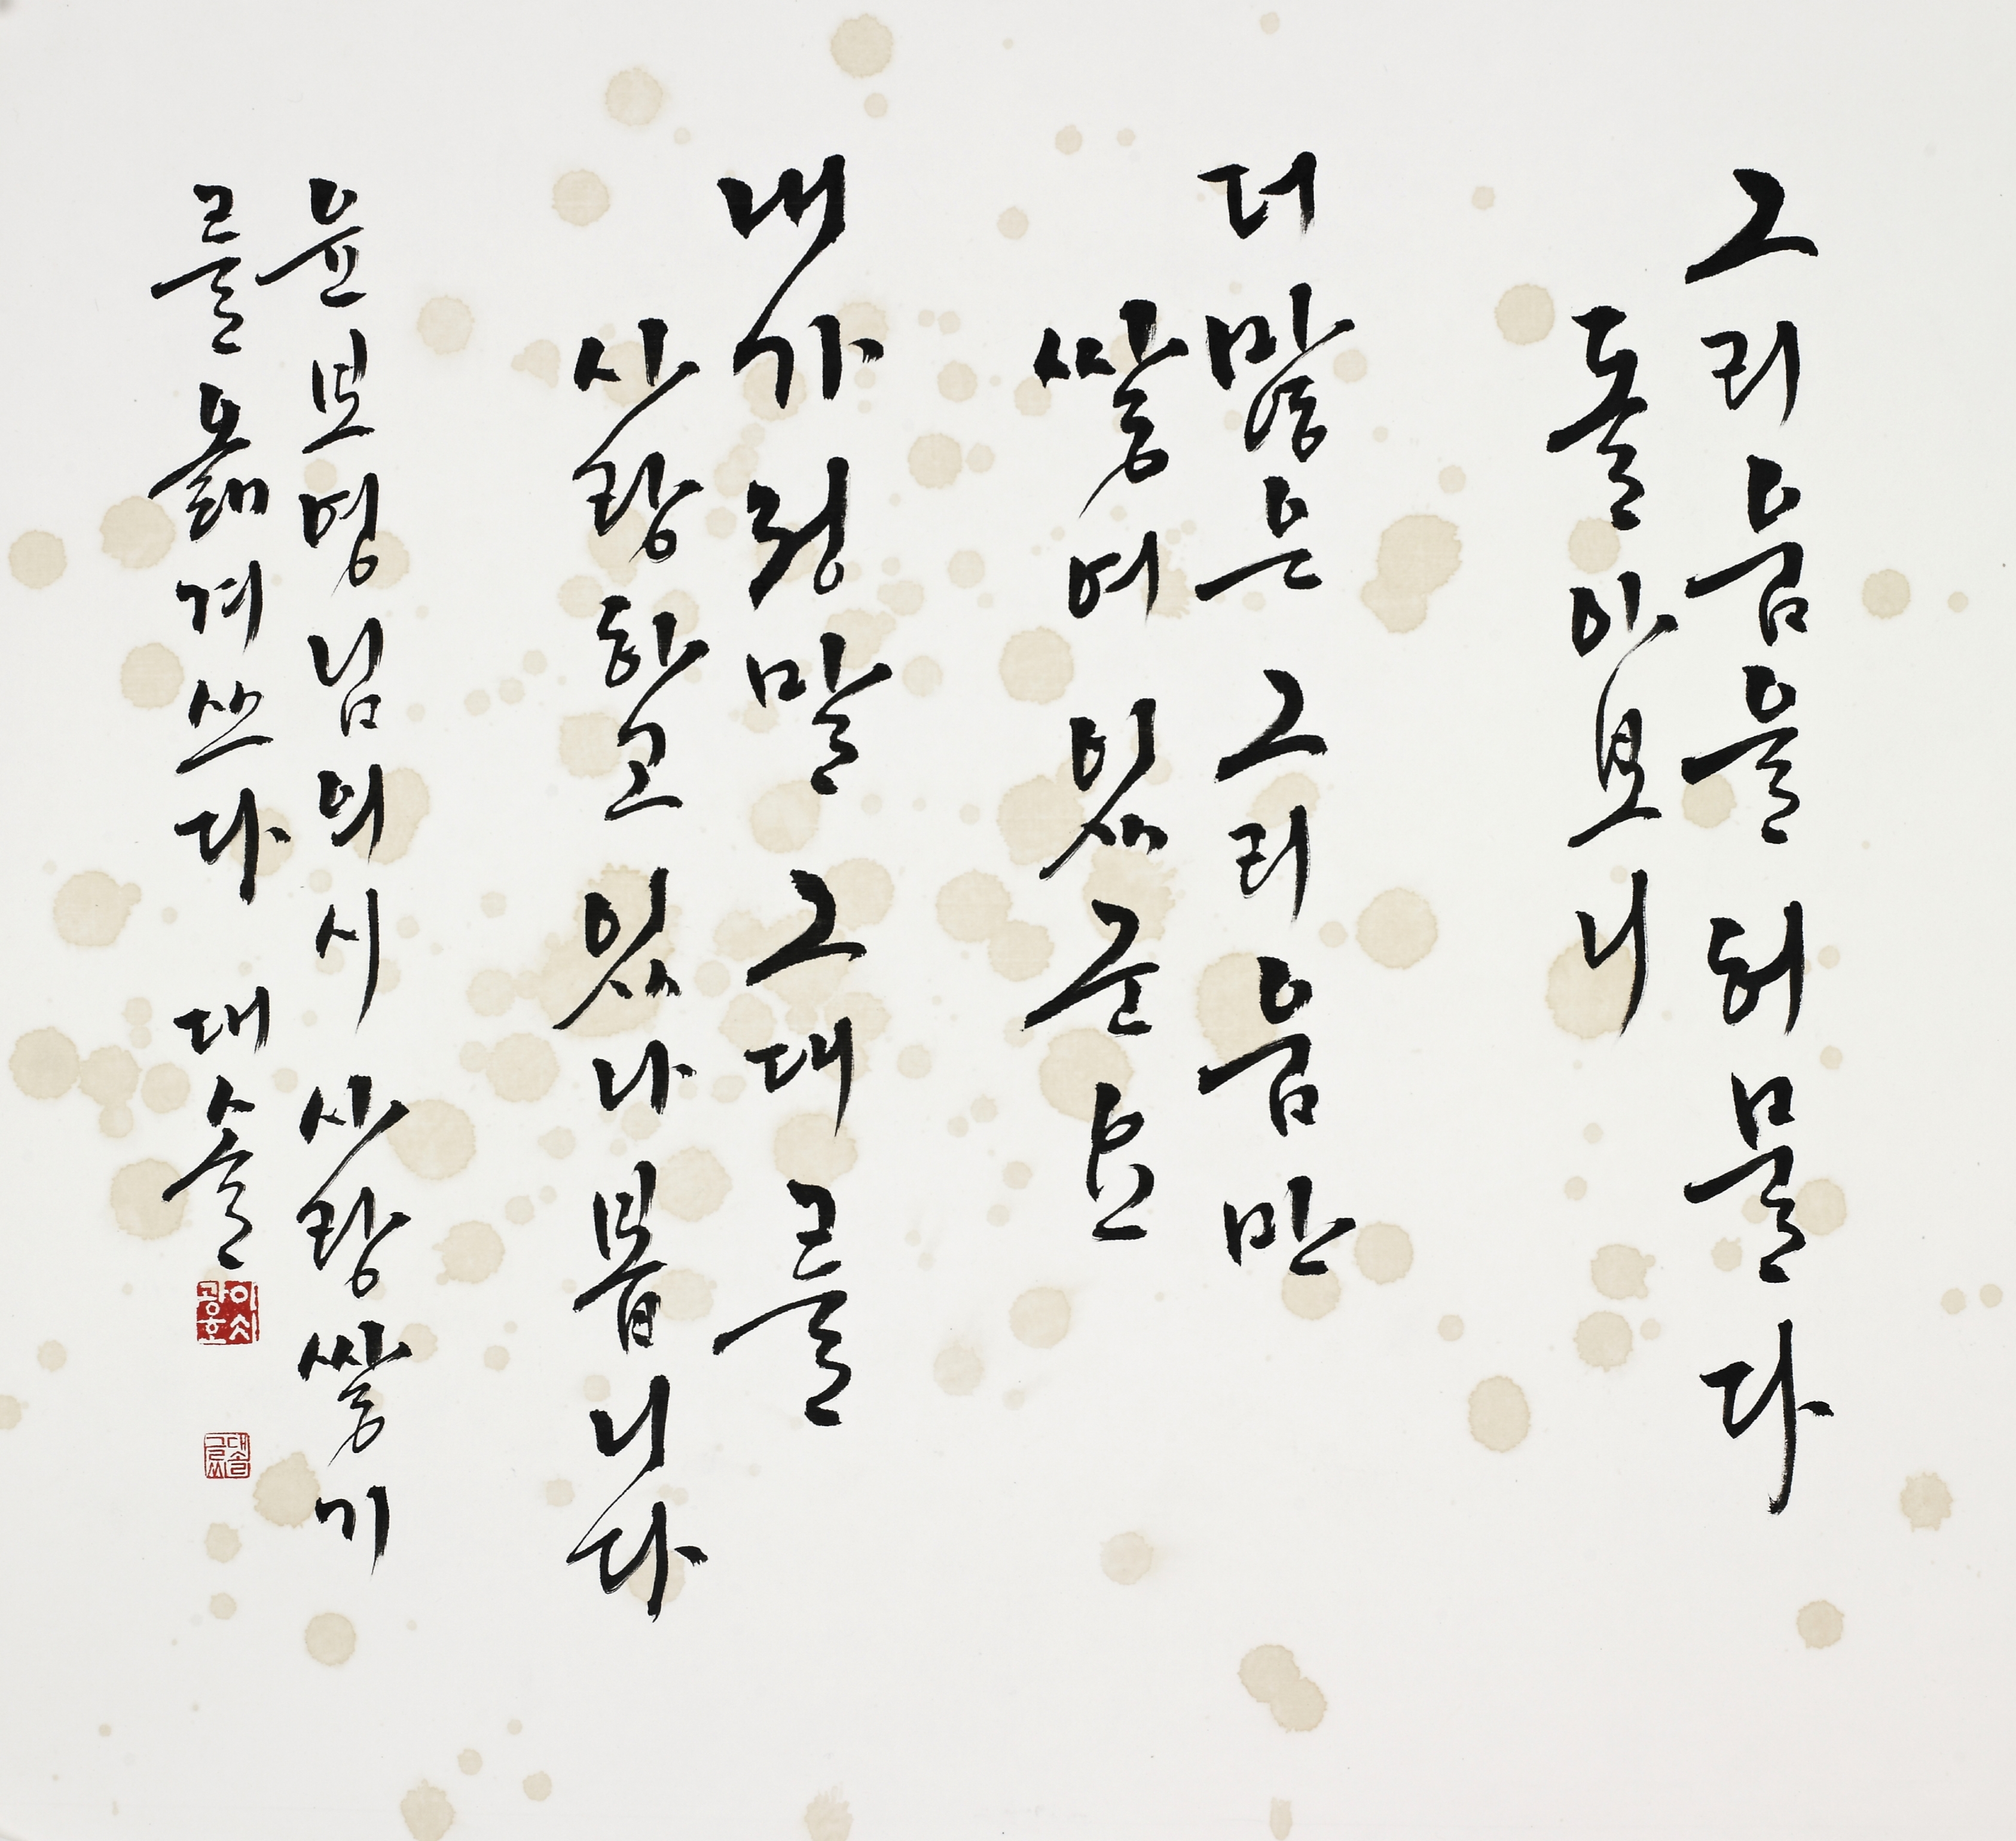 그리움을 허물다
돌아보니
더 많은 그리움만
쌓여 있군요
내가 정말 그대를
사랑하고 있나 봅니다
윤보영님의 시 사랑 쌓기
를 옮겨 쓰다 대솔